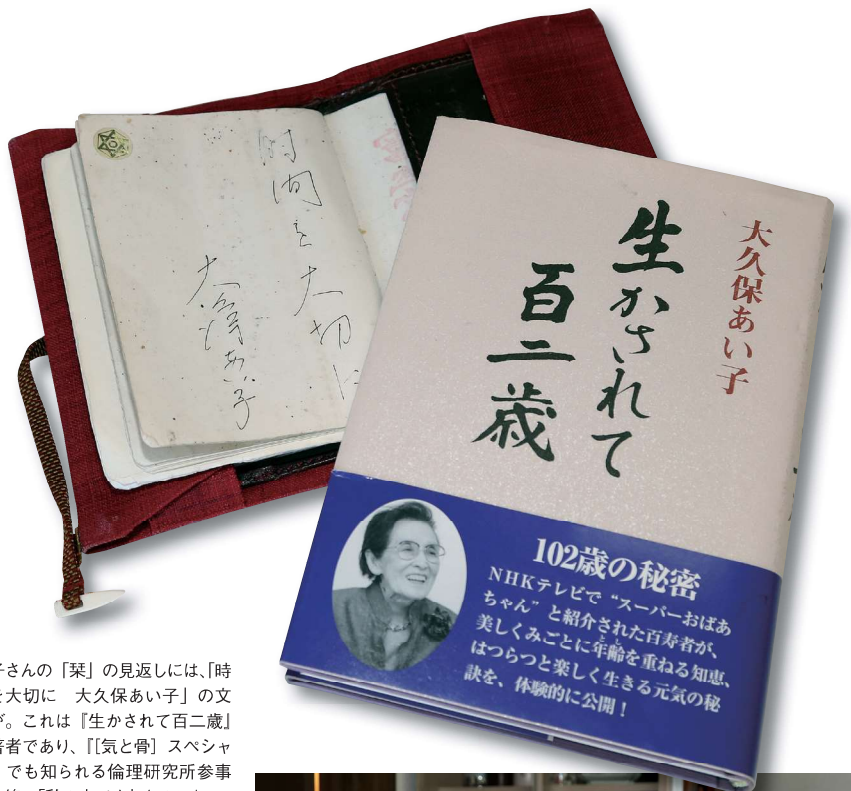 時間を大切に
大久保あい子
大久保あい子
生かされて
百二歳
102歳の秘密
NHKテレビで“スーパーおばあ
ちゃん”と紹介された百寿者が、
美しくみごとに年齢を重ねる知恵、
はつらつと楽しく生きる元気の秘
訣を、体験的に公開！
子さんの「栞」の見返しには、「時
を大切に　大久保あい子」の文
が。これは『生かされて百二歳』
著者であり、『[気と骨] スペシャ
でも知られる倫理研究所参事